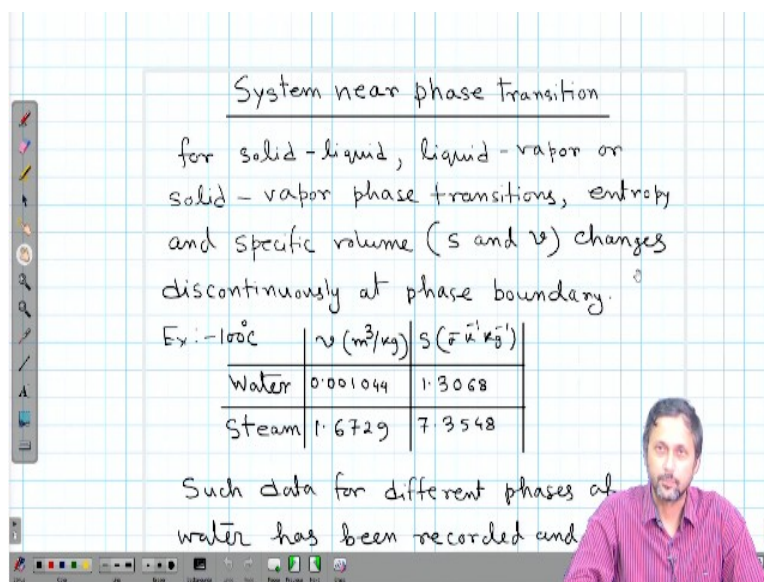 System near phase transition
for solid - liquid, liquid - vapor or
solid - vapor phase transitions, entropy
and specific volume (s and v) changes
discontinuously at phase boundary.
Ex:- 100°C v (m³/kg) S (J K⁻¹ kg⁻¹)
Water 0.001044 1.3068
Steam 1.6729 7.3548
Such data for different phases of
water has been recorded and